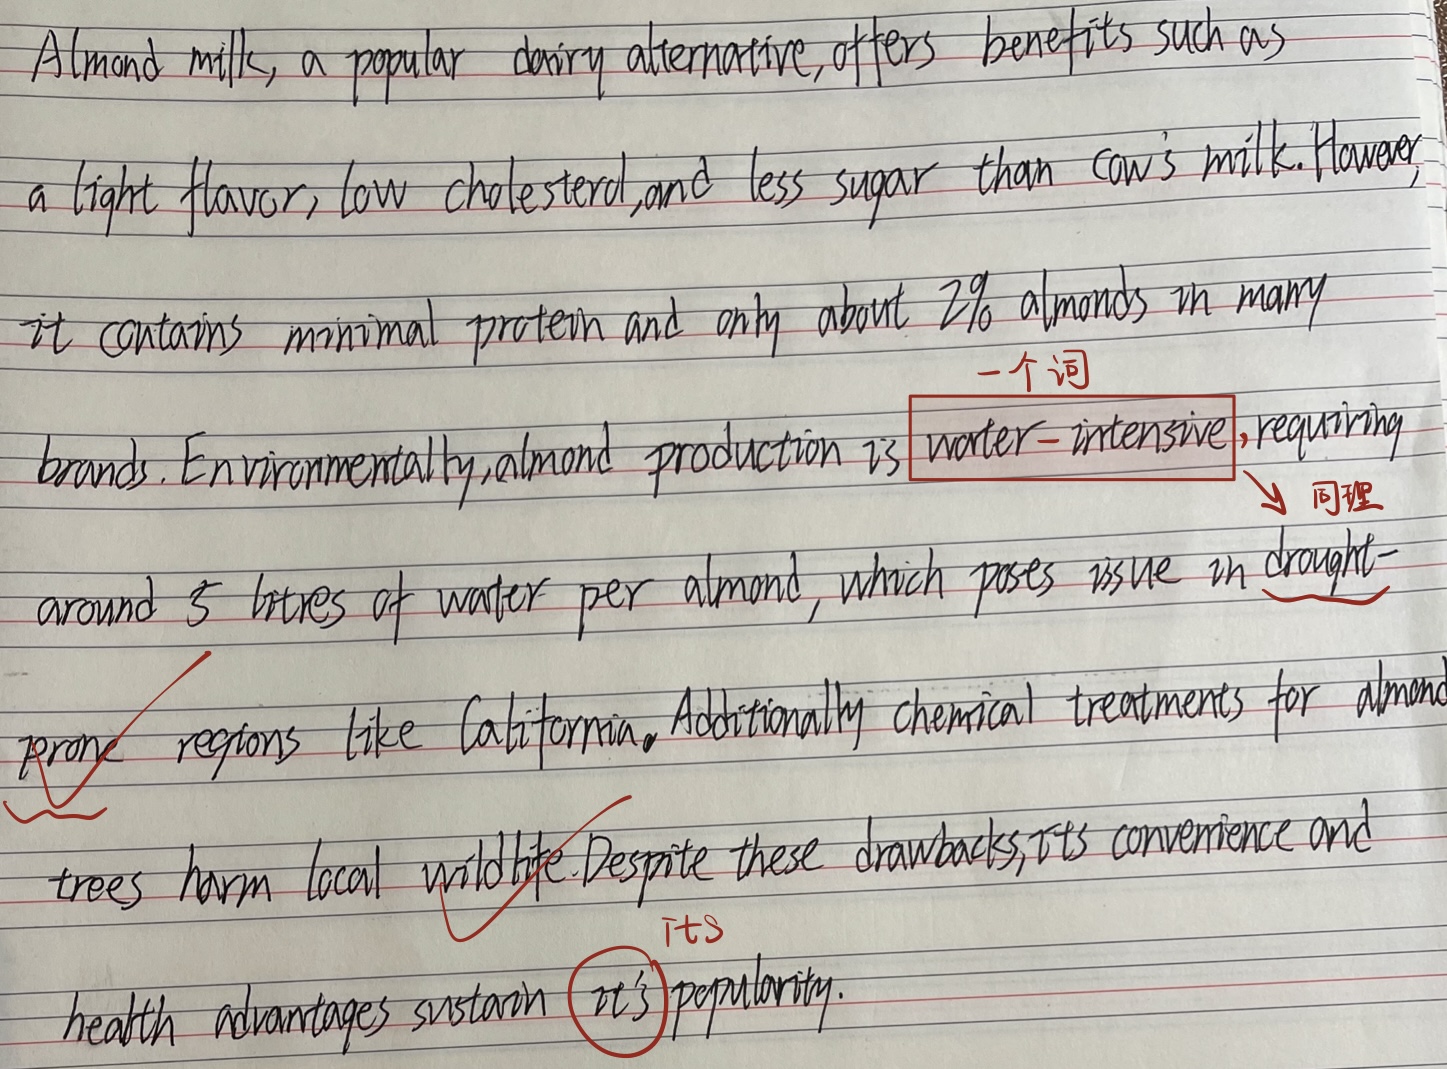 Almond milk, a popular dairy alternative, offers benefits such as
a light flavor, low cholesterol, and less sugar than cow's milk. However,
it contains minimal protein and only about 2% almonds in many
一个词
brands. Environmentally, almond production is water-intensive, requiring
同理
around 5 litres of water per almond, which poses issue in drought-
prone regions like California. Additionally chemical treatments for almond
trees harm local wildlife. Despite these drawbacks, its convenience and
its
health advantages sustain it's popularity.